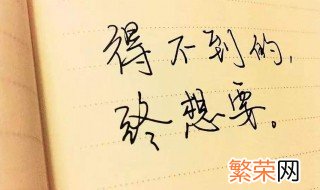 得不到的,
终想要。
繁荣网